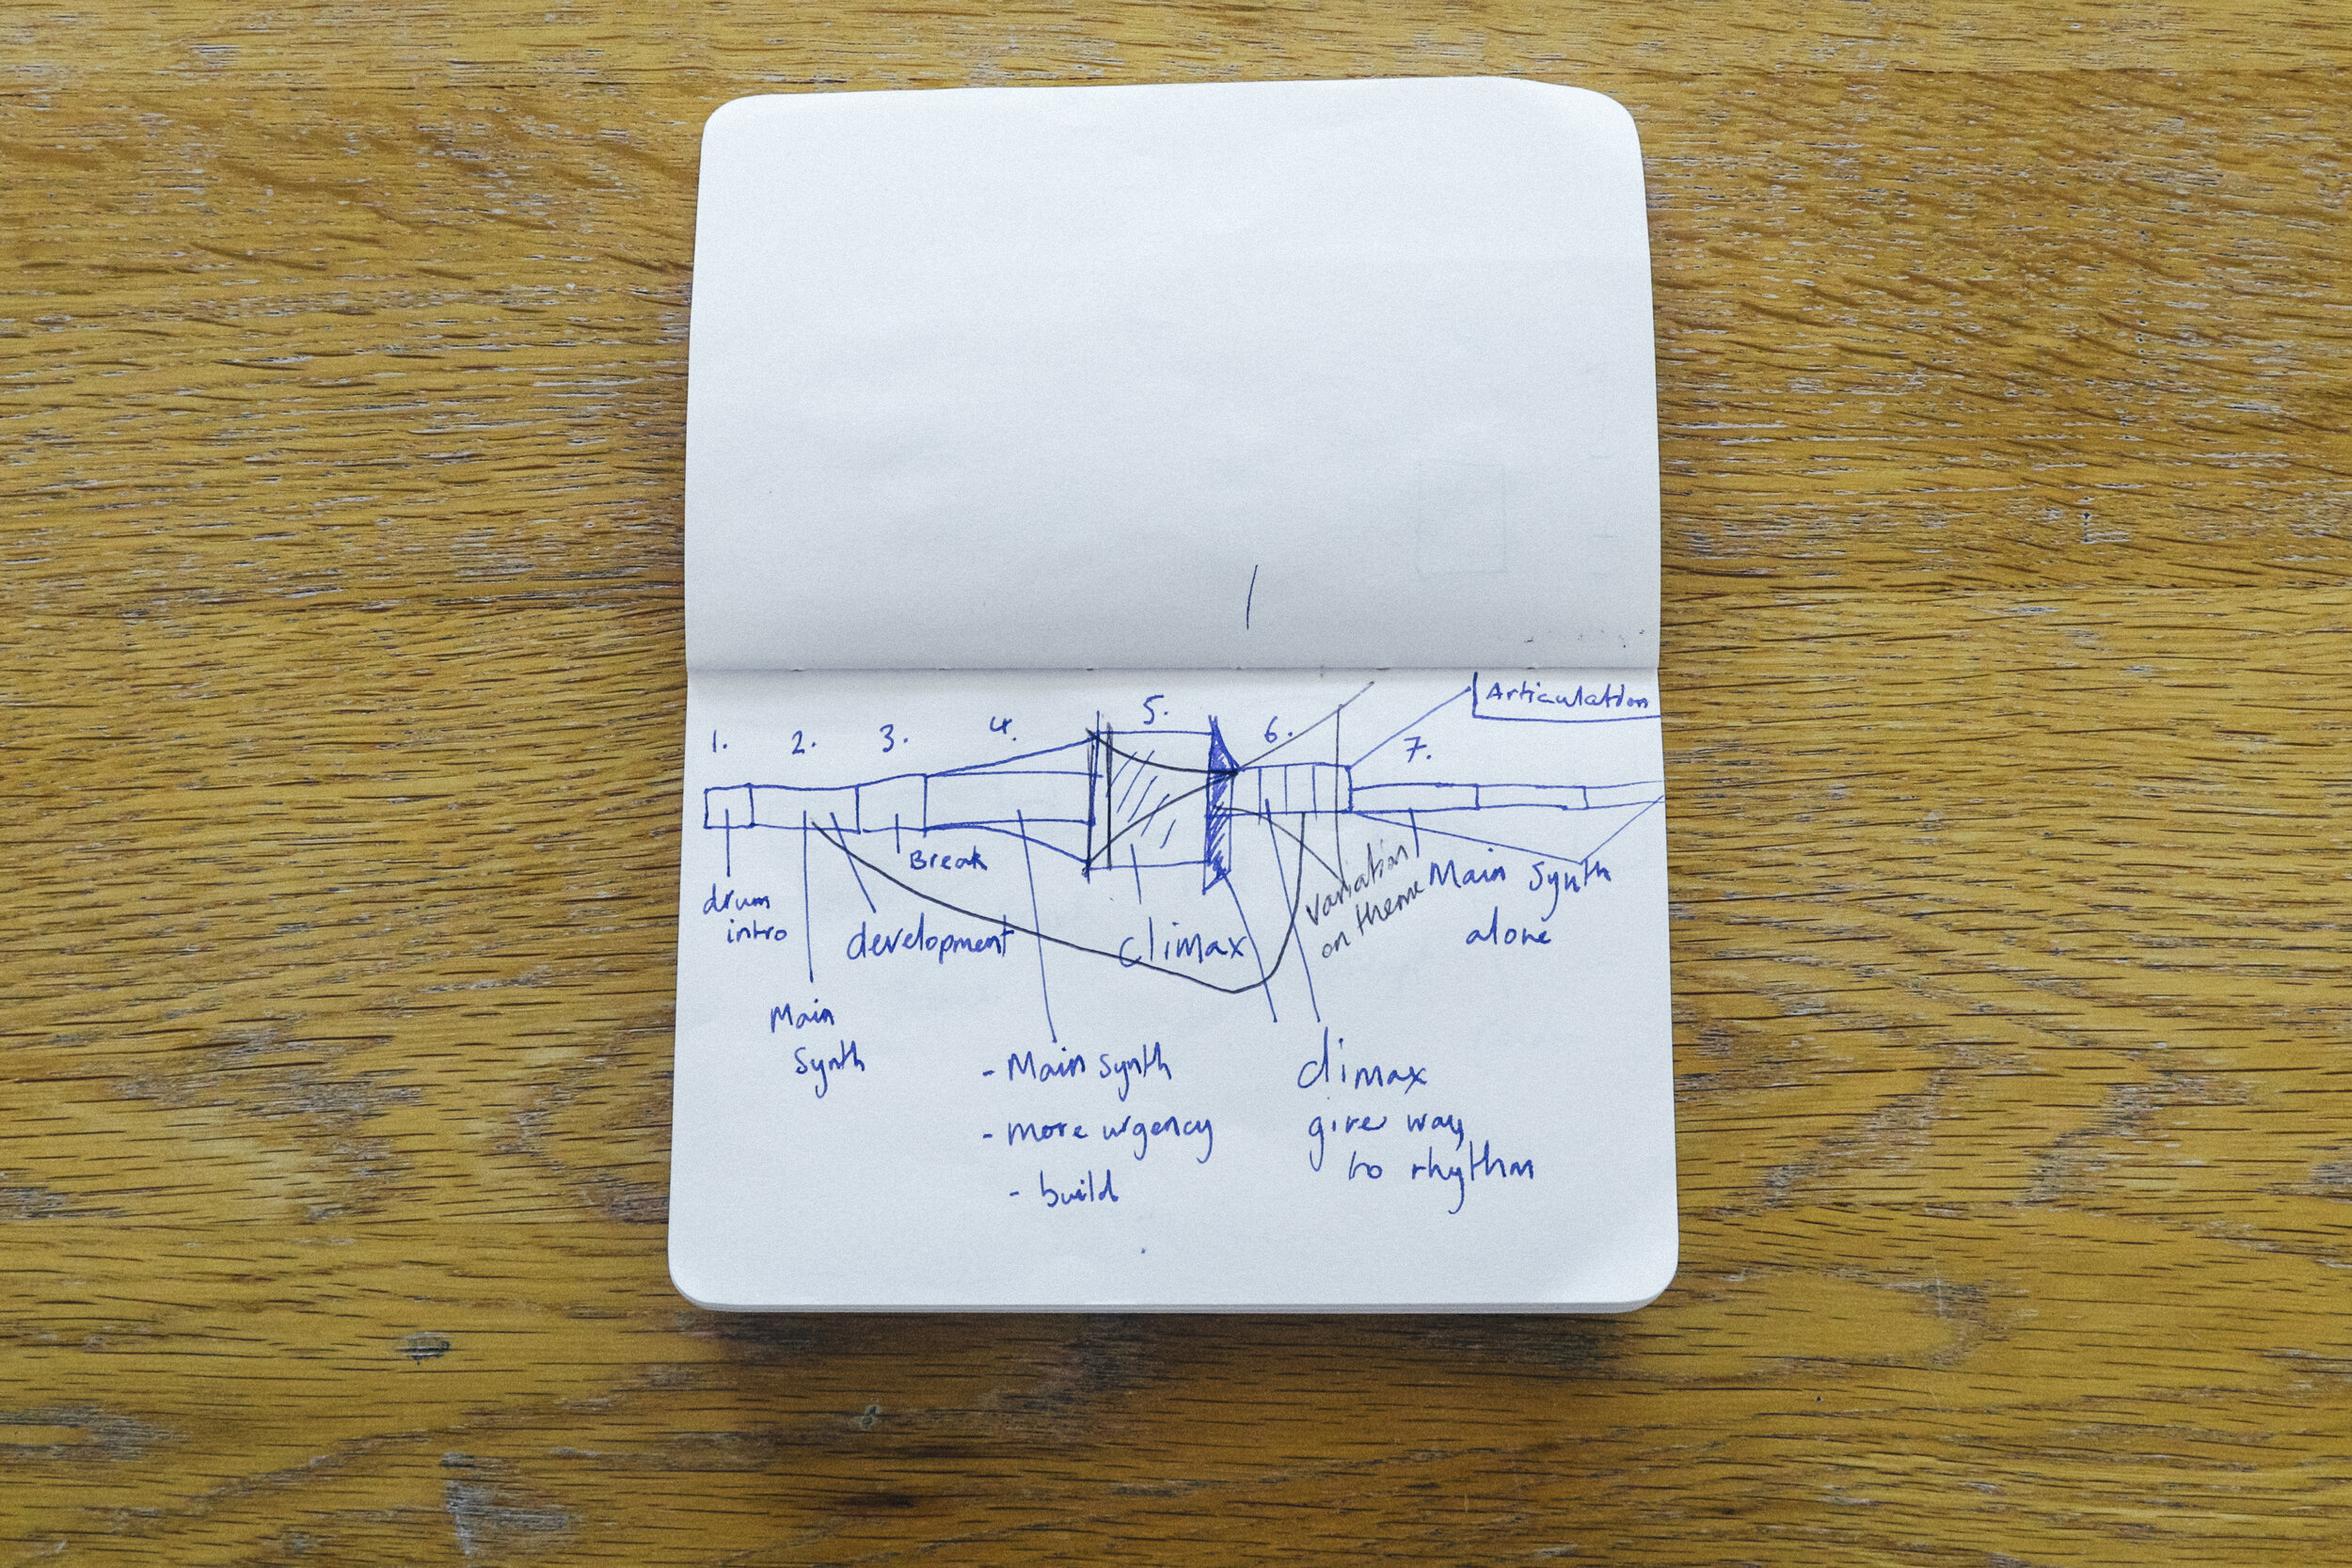 Articulation
1.
2.
3.
4.
5.
6.
7.
Break
drum
intro
development
climax
Variation
on theme
Main Synth
alone
Main
Synth
- Main synth
- more urgency
- build
climax
give way
to rhythm